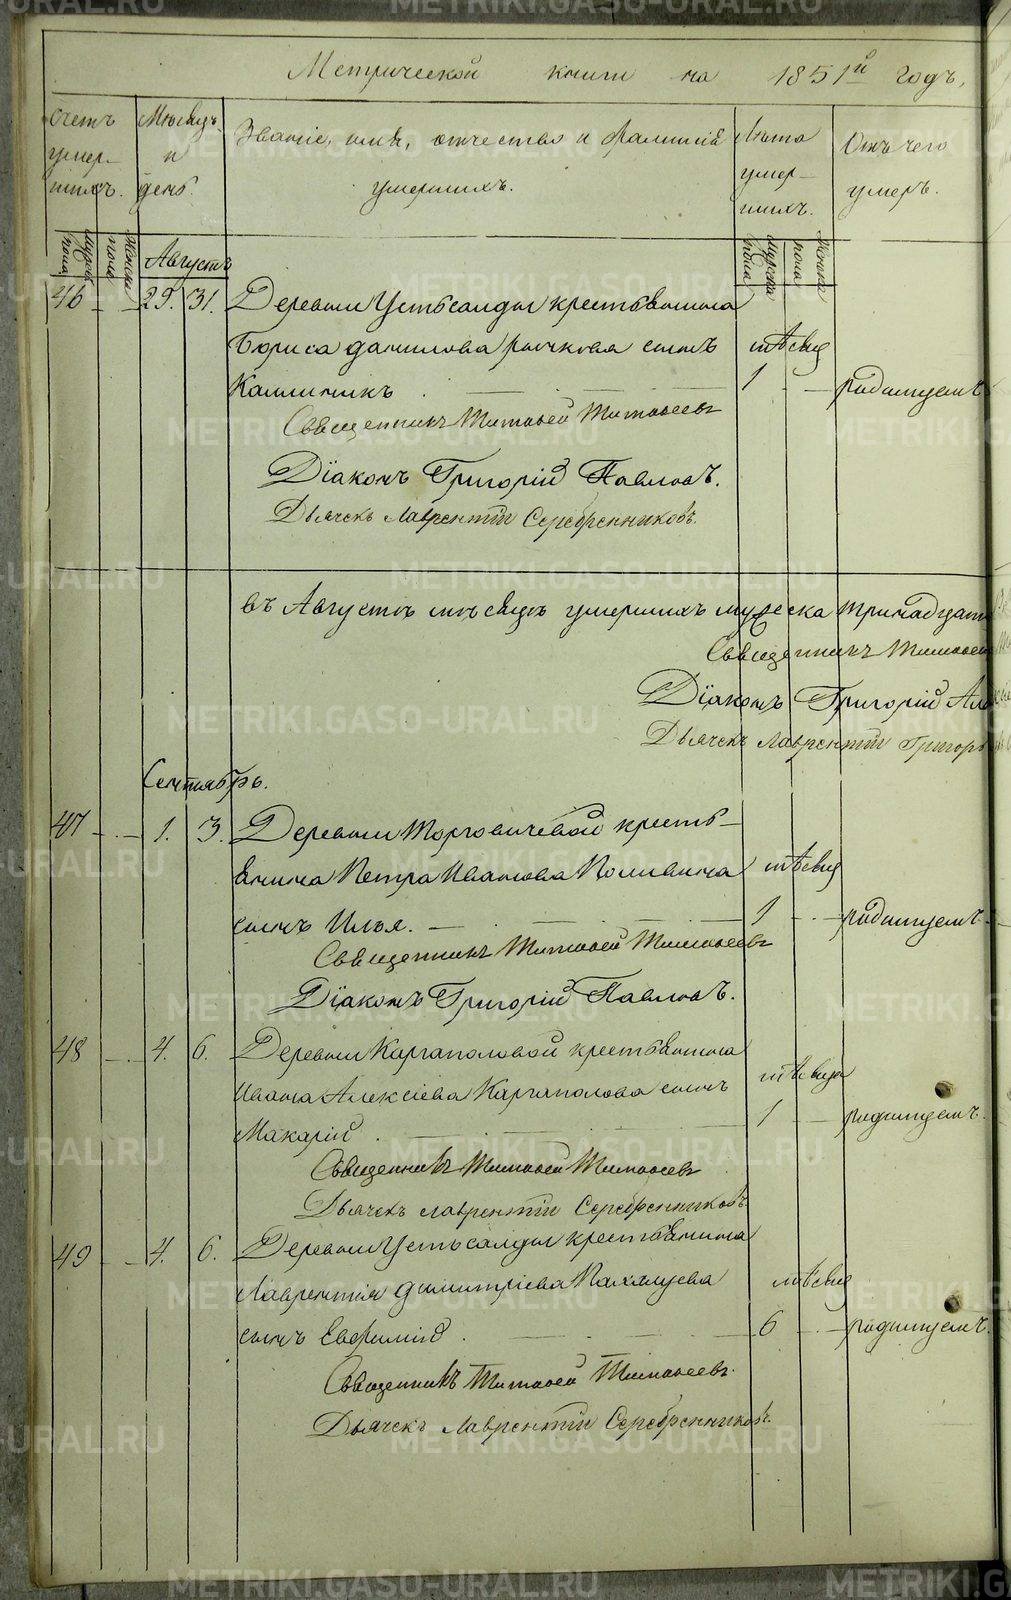 Метрической книги на 1851й годъ,
Счетъ умер-шихъ.
Мѣсяцъ и день.
Званіе, имя, отчество и фамилія умершихъ.
Лѣта умер-шихъ.
Отъ чего умеръ.
Мужска пола
Женска пола
Августъ
Мужска пола
Женска пола
46 — — 29. 31. Деревни Устьсалды крестьянина
Бориса данилова сынъ мѣсяц
Каллиникъ 1 — родимцемъ
Священникъ Тимофей Тимофеевъ
Діаконъ Григорій Павловъ.
Дьячекъ Лаврентій Серебренниковъ.
въ Августѣ мѣсяцѣ умершихъ мужеска тринадцат
Священникъ Тимофей
Діаконъ Григорій
Дьячекъ Лаврентій
Сентябрь.
47 — — 1. 3. Деревни Морговичевой кресть-
янина Петра Иванова мѣсяц
сынъ Илья. 1 — родимцемъ
Священникъ Тимофей Тимофеевъ
Діаконъ Григорій Павловъ.
48 — — 4. 6. Деревни Каргаполовой крестьянина
Ивана Алексіева Каргаполова сынъ мѣсяца
Макарій 1 — родимцемъ.
Священникъ Тимофей Тимофеевъ
Дьячекъ Лаврентій Серебренниковъ
49 — — 4. 6. Деревни Устьсалды крестьянина
Лаврентія димитріева мѣсяц
сынъ Евфимій 6 — родимцемъ.
Священникъ Тимофей Тимофеевъ.
Дьячекъ Лаврентій Серебренниковъ.
METRIKI.GASO-URAL.RU